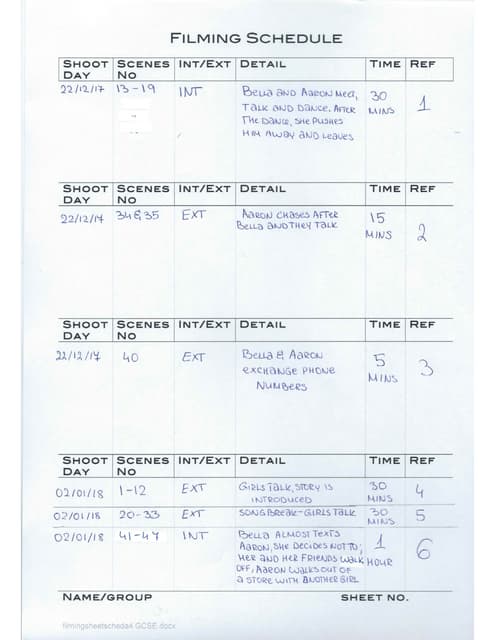 FILMING SCHEDULE
SHOOT DAY SCENES NO INT/EXT DETAIL TIME REF
22/12/17 13-19 INT BELLA AND AARON MEET, 30 MINS 1
TALK AND DANCE. AFTER
THE DANCE, SHE PUSHES
HIM AWAY AND LEAVES
SHOOT DAY SCENES NO INT/EXT DETAIL TIME REF
22/12/17 34&35 EXT AARON CHASES AFTER 15 MINS 2
BELLA AND THEY TALK
SHOOT DAY SCENES NO INT/EXT DETAIL TIME REF
22/12/17 40 EXT BELLA & AARON 5 MINS 3
EXCHANGE PHONE
NUMBERS
SHOOT DAY SCENES NO INT/EXT DETAIL TIME REF
02/01/18 1-12 EXT GIRLS TALK, STORY IS 30 MINS 4
INTRODUCED
02/01/18 20-33 EXT SONG BREAK-GIRLS TALK 30 MINS 5
02/01/18 41-47 INT BELLA ALMOST TEXTS 1 HOUR 6
AARON, SHE DECIDES NOT TO;
HER AND HER FRIENDS WALK
OFF, AARON WALKS OUT OF
A STORE WITH ANOTHER GIRL
NAME/GROUP SHEET NO.
filmingsheetscheda4 GCSE.docx